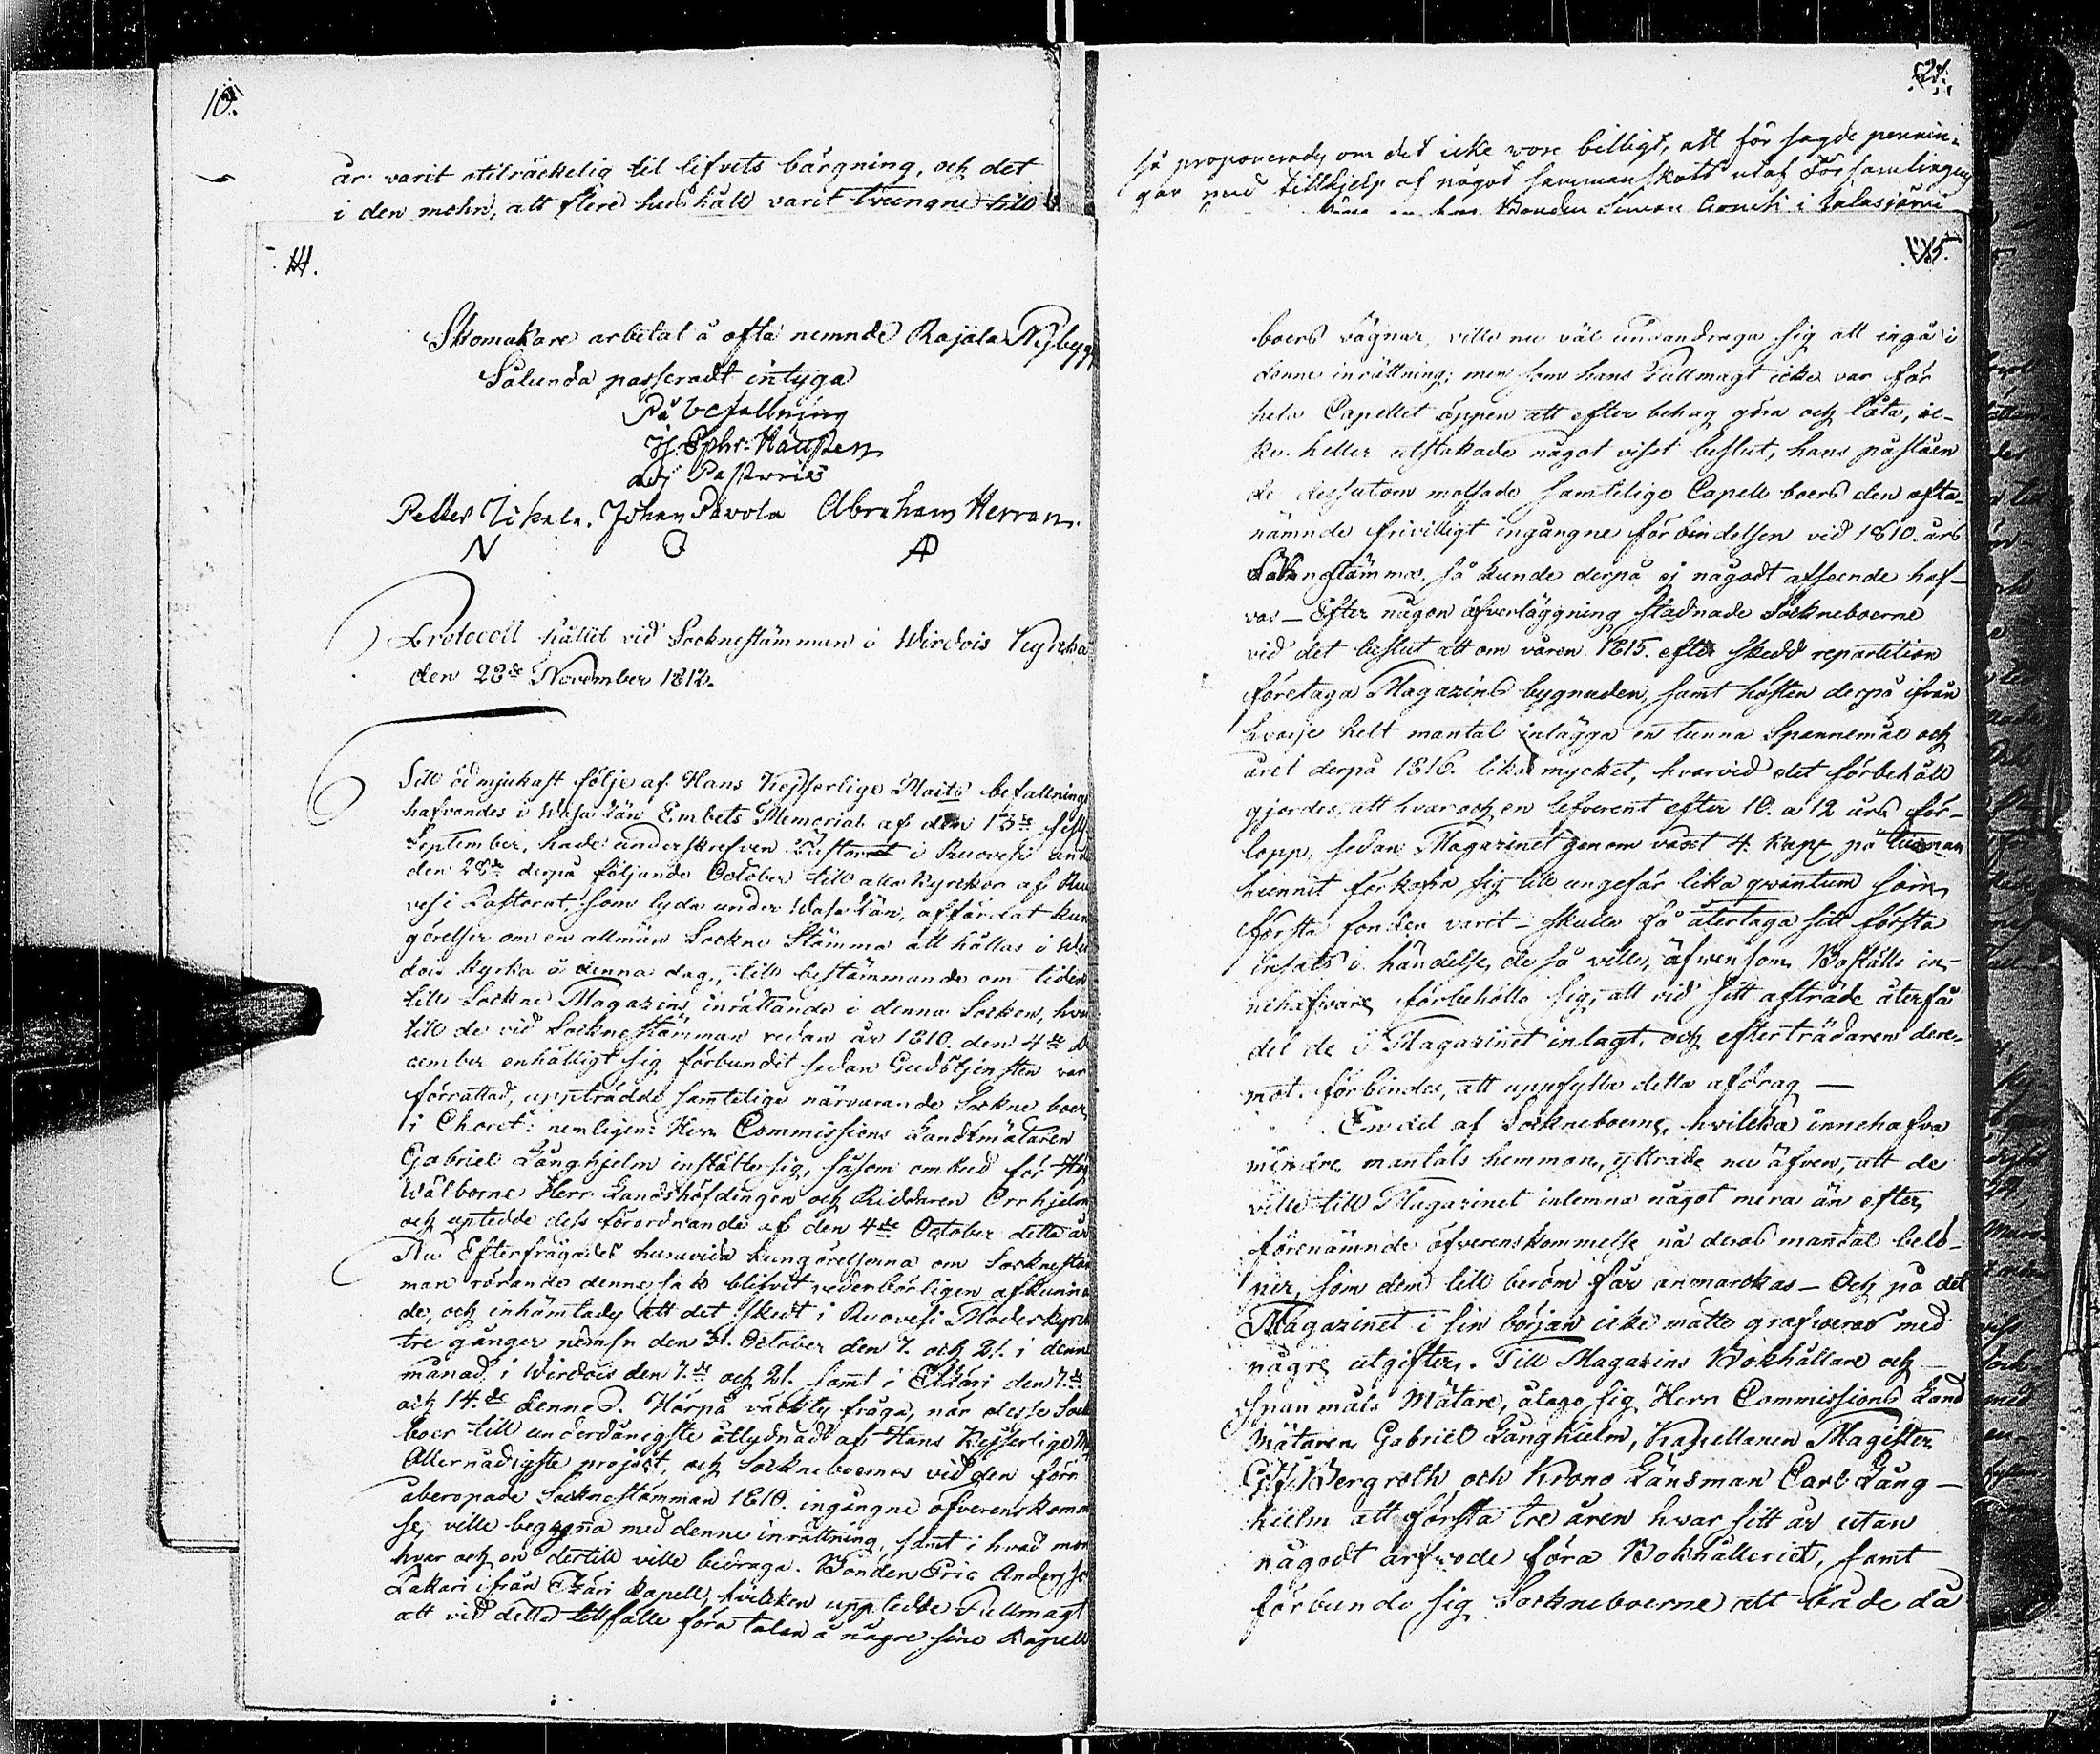 10.
år varit otilräckelig til lifvets bärgning, och det
i den mohn, att flere hushåll varit tvungne till
så proponerades om det icke vore billigt, att för sagde pennin-
gar med tillhjelp af något sammanskott utaf Församlingen
Bonden Simon i Jalasjärvi
111.
Skomakare arbetat å ofta nemnde Rajala Nybygg
Sålunda passeradt intyga
På befallning
H. Ephr. Haupen
adj Pastoris
Petter Zikala. Johan Pavola Abraham Herran.
N
Protocoll hållit vid Socknestämman i Wirdois Kyrka
den 28de November 1813.
Till ödmjukast följe af Hans Kejserlige Maits befallnings
hafvandes i Wasa Län Embets Memorial af den 13de sistl.
September, hade underskrefven Pastorat i Ruovesi und
den 28de derpå följande October till alla Kyrkor af Ruo
vesi Pastorat, som lyda under Wasa Län, affärdat kun
görelser om en allmän Sockne Stämma att hållas i Wir
dois Kyrka å denna dag, till bestämmande om tiden
till Sockne Magazins inrättande i denna Socken, hvar
till de vid Socknestämman redan år 1810. den 4de De
cember enhälligt sig förbundit sedan Gudstjensten var
förrättad, uppträdde samtelige närvarande Sockne boer
i Choret: nemligen: Herr Commissions Landtmätaren
Gabriel Långhjelm instälte sig, såsom ombud för Hög
Wälborne Herr Landshöfdingen och Riddaren Orrhjelm
och uptedde dess förordnande af den 4de October detta år
Nu Efterfrågades huruvida kungörelserna om Socknestäm
man rörande denne sak blifvit vederbörligen afkunna
de, och inhämtades att det skedt i Ruovesi Moderkyrka
tre gånger nemln den 31. October den 7. och 21. i denne
månad, i Wirdois den 7.de och 21. samt i Etzäri den 7.de
och 14.de dennes. Härpå väcktes fråga, när desse Sock
boer till underdånigste åtlydnad af Hans Kejserlige M
Allernådigste project, och Sockneboernes vid den förr
åberopade Socknestämman 1810. ingångne öfverenskomm
se, ville begagna med denne inrättning, samt i hvad mon
hvar och en dertill ville bidraga. Bonden Eric Anders so
Lakari ifrån Etzäri kapell, hvilken upptedde Fullmagt
att vid detta tillfälle föra talan å någre sine Kapell
115.
boers vägnar, ville nu väl undandraga sig att ingå i
denne inrättning; men som hans Fullmagt icke var för
hela Capellet öppen att efter behag göra och låta, ic-
ke heller utstakade något visst beslut, hans påståen
de dessutom motsade samtelige Capell boers den ofta-
nämnde frivilligt ingångne förbindelsen vid 1810. års
Socknestämma. så kunde derpå ej någodt afseende haf-
vas – Efter någon öfverläggning stadnade Sockneboerne
vid det beslut att om våren 1815. efter skedd repartition
företaga Magazins bygnaden, samt hösten derpå ifrån
hvarje helt mantal inlägga en tunna Spannemål och
året derpå 1816. lika mycket, hvarvid det förbehåll
gjordes, att hvar och en lefverent efter 10. a 12 års för-
lopp, sedan Magazinet genom växt 4. Kapp på tunnan
hunnit förkofra sig till ungefär lika qvantum som
första fonden varit – skulle få återtaga sitt första
insats i händelse de så ville, äfwensom Boställs in-
nehafvare förbehöllo sig, att vid sitt afträde återfå
det de i Magazinet inlagt, och efterträdaren dere-
mot förbindes, att uppfylla detta afdrag –
En del af Sockneboerne, hvilka innehafva
mindre mantals hemman, yttrade nu äfven, att de
ville till Magazinet inlemna något mera än efter
förenämnde öfverenskommelse på deras mantal belö-
per, som dem till beröm får anmärkas – Och på det
Magazinet i sin början icke måtte grafweras med
någre utgifter. Till Magazins Bokhållare och
Spanmåls Mätare, åtogo sig Herr Commissions Land
Mätaren Gabriel Långhielm, Kapellanen Magister
G. J. Bergroth och Krono Länsman Carl Lång-
hielm att första tre åren hvar sitt år utan
någodt arfwode föra Bokhålleriet, samt
förbundo sig Sockneboerne att både då